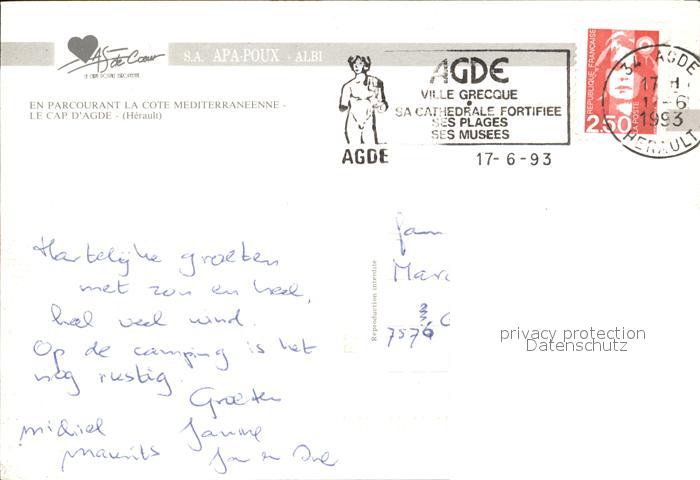 As de Cœur
LE CAP POUR EMPREINTE
S.A. APA-POUX - ALBI
EN PARCOURANT LA COTE MEDITERRANEENNE -
LE CAP D'AGDE - (Hérault)
AGDE
AGDE
VILLE GRECQUE
SA CATHEDRALE FORTIFIEE
SES PLAGES
SES MUSEES
17-6-93
REPUBLIQUE FRANÇAISE
LA POSTE
2,50
34 AGDE
17 H
17-6
1993
HERAULT
Hartelijke groeten
met zon en heel,
heel veel wind.
Op de camping is het
nog rustig.
Groeten
michiel Janine
maurits
Reproduction interdite
fam
Marc
7576
privacy protection
Datenschutz